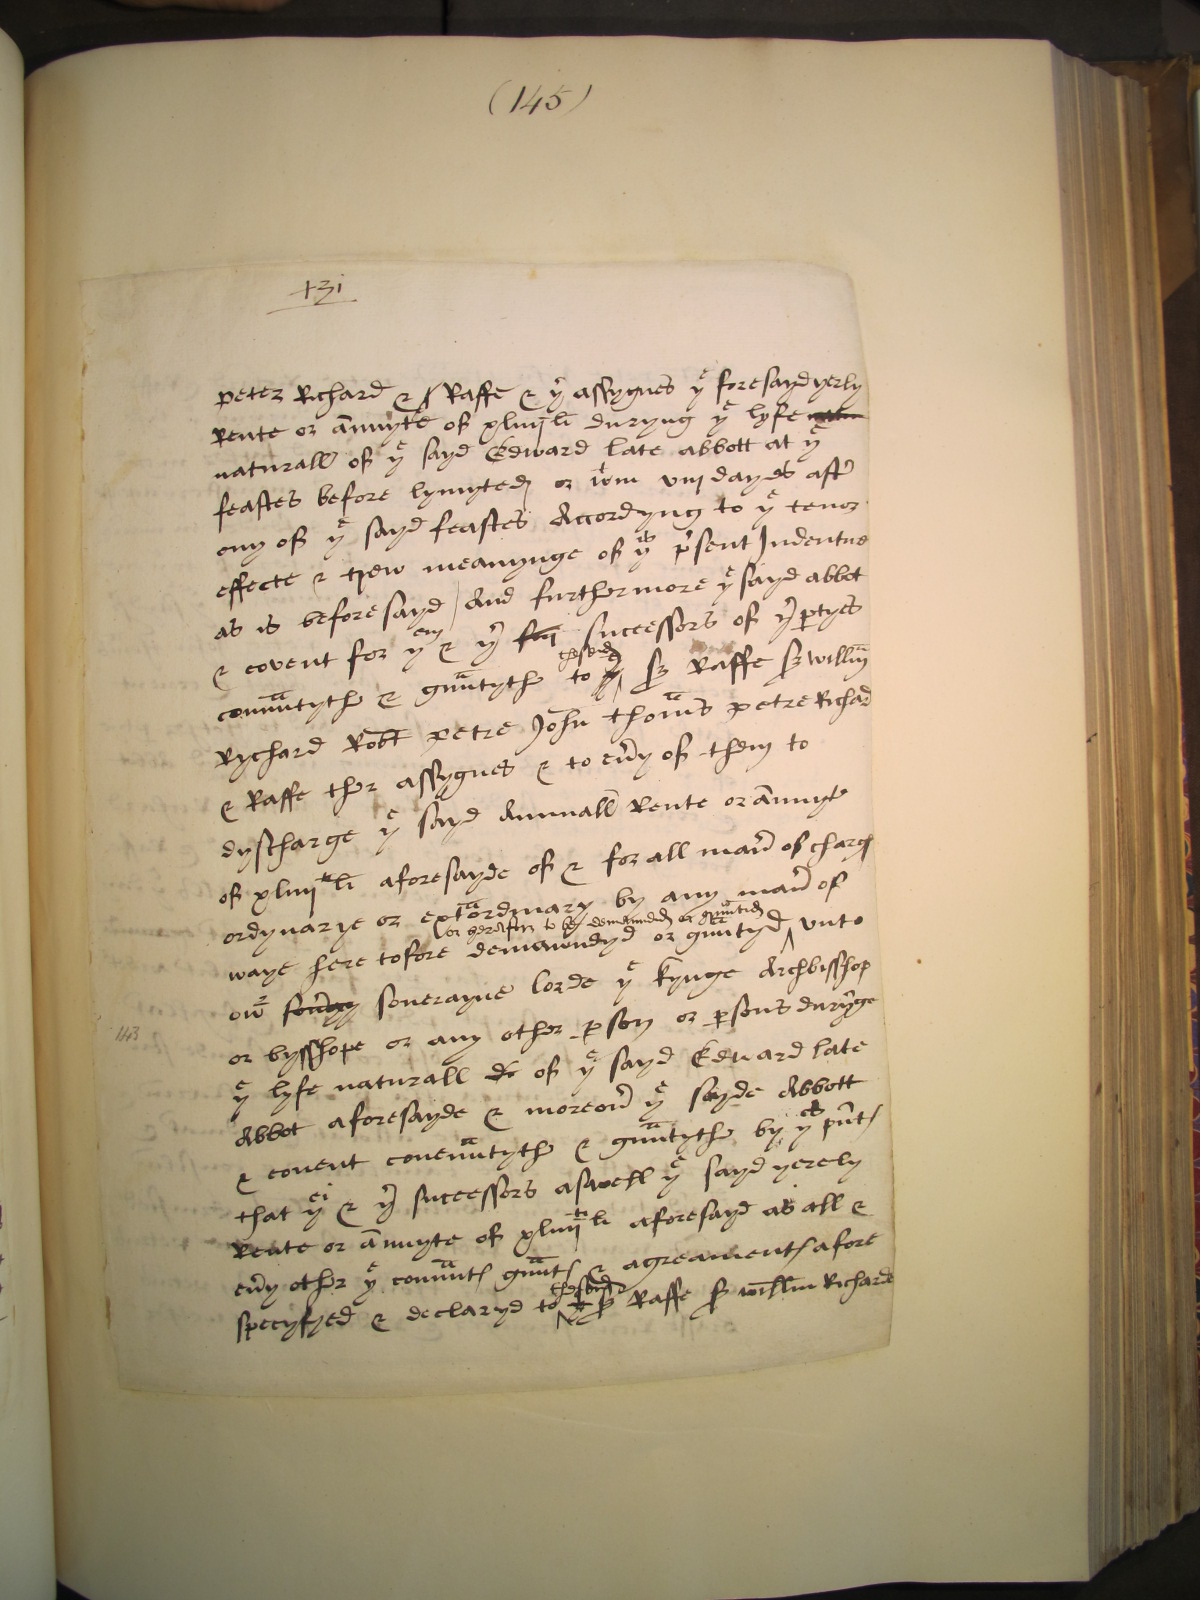 (145)
+3i
peter Richard & Raffe & yr assygnes ye foresayd yerly
Rente or annuyte of xliiij li duryng ye lyfe
naturall of ye sayd Edward late abbott at ye
feastes before lymyted or wtin viij dayes aftr
ony of ye sayd feastes Accordyng to ye tenor
effecte & trew meanynge of ys psent Indenture
as is before sayd / And furthermore ye sayd abbot
& covent for yem & yr successors of yr ptyes
covenntythe & gunntythe to thesayd sr Raffe sr Willm
Rychard Robt petre John thoms petre Richard
& Raffe ther assygnes & to evy of them to
dyscharge ye sayd Annuall Rente or annuyte
of xliiij li aforesayde of & for all manr of charges
ordynarye or extraordinary by any manr of
or herafter to be demaunded or grauntid
waye here tofore demawndyd or grauntyd unto
owr soverayne lorde ye kynge Archbisshop
or bysshope or any other pson or psons durynge
143
ye lyfe naturall of ye sayd Edward late
Abbot aforesayde & moreovr ye sayde Abbott
& covent covenntythe & gunntythe by ys pnts
that yei & yr successors aswell ye sayd yerely
Rente or annuyte of xliiij li aforesayd as all &
evy other ye covennts gunnts & agreaments afore
specyfyed & declaryd to thesayd sr Raffe sr willm Richarde